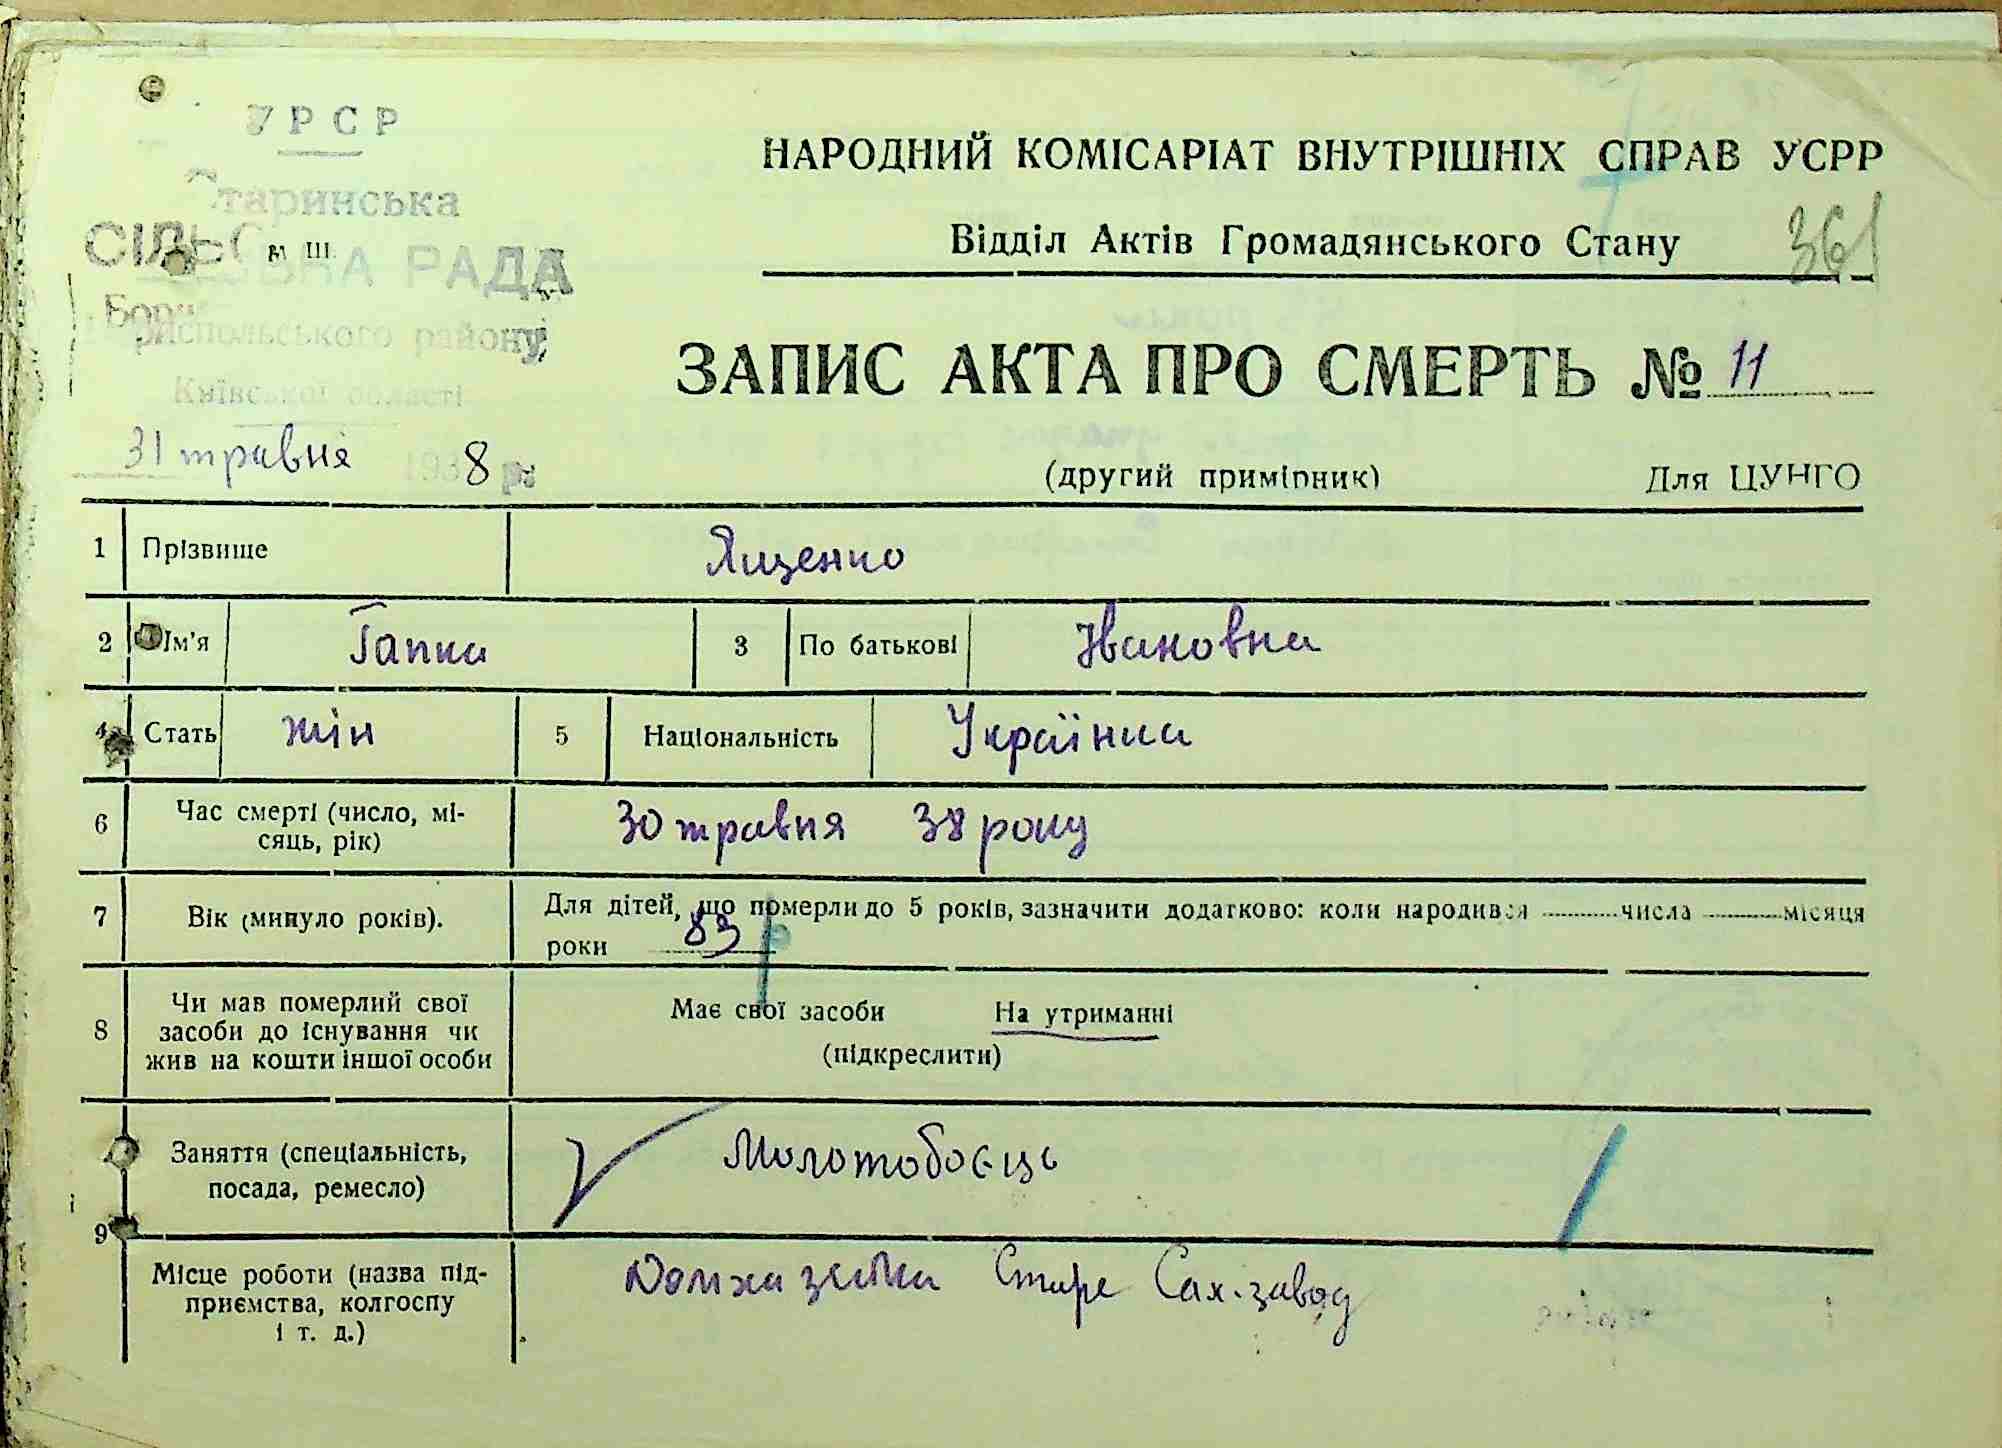 УРСР
Старинська
СІЛЬСЬКА РАДА
м. ш.
Бориспольського району,
Київської області
31 травня 1938 р.
НАРОДНИЙ КОМІСАРІАТ ВНУТРІШНІХ СПРАВ УСРР
Відділ Актів Громадянського Стану
361
ЗАПИС АКТА ПРО СМЕРТЬ № 11
(другий примірник) Для ЦУНГО
1 Прізвище Ященко
2 Ім'я Гапка 3 По батькові Івановна
4 Стать жін 5 Національність Українка
6 Час смерті (число, мі-
сяць, рік) 30 травня 38 року
7 Вік (минуло років). Для дітей, що померли до 5 років, зазначити додатково: коли народився числа місяця
роки 83
8 Чи мав померлий свої
засоби до існування чи
жив на кошти іншої особи
Має свої засоби На утриманні
(підкреслити)
9 Заняття (спеціальність,
посада, ремесло) Молотобоєць
Місце роботи (назва під-
приємства, колгоспу
і т. д.) Старе Сах. завод